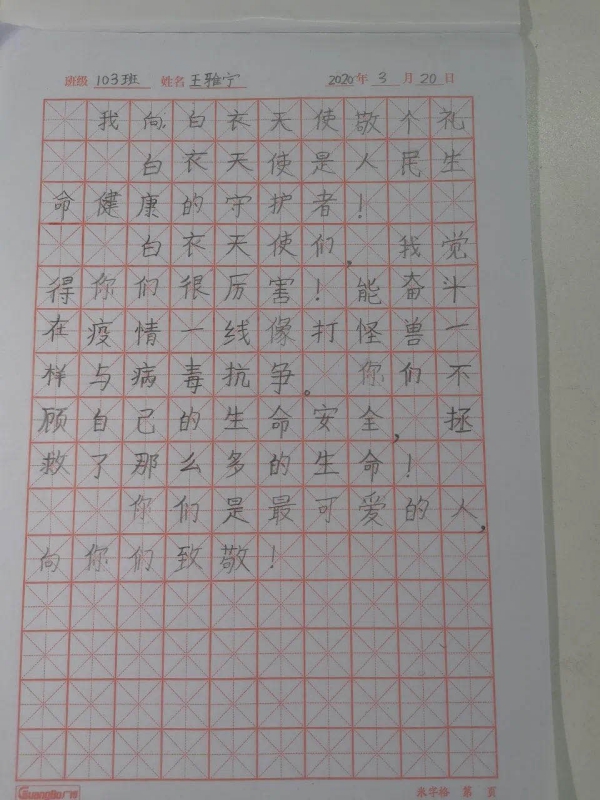 班级 103班 姓名 王雅宁 2020年 3 月 20 日
我向白衣天使敬个礼
白衣天使是人民生
命健康的守护者!
白衣天使们,我觉
得你们很厉害!能奋斗
在疫情一线像打怪兽一
样与病毒抗争。你们不
顾自己的生命安全,拯
救了那么多的生命!
你们是最可爱的人,
向你们致敬!
Guangbo广博 米字格 第 页